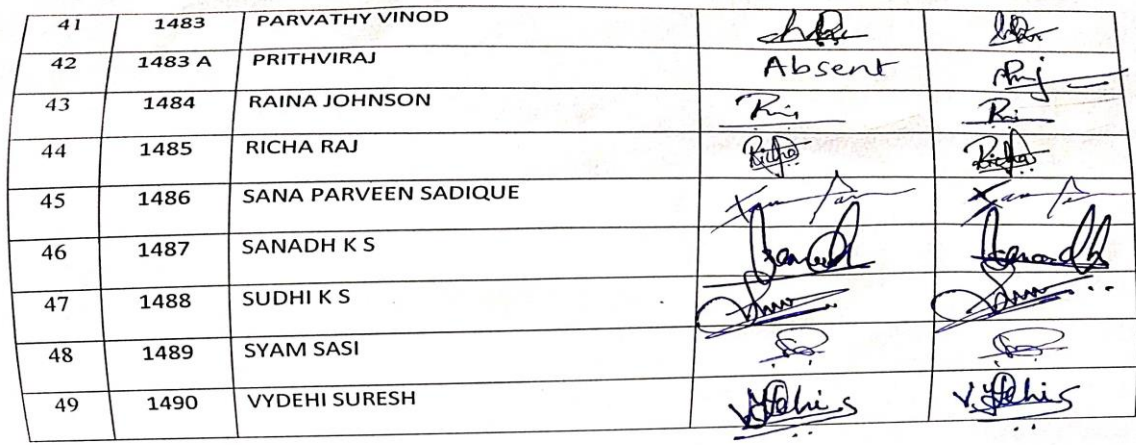 41 1483 PARVATHY VINOD
42 1483 A PRITHVIRAJ Absent
43 1484 RAINA JOHNSON
44 1485 RICHA RAJ Richa Richa
45 1486 SANA PARVEEN SADIQUE
46 1487 SANADH K S Sanadh Sanadh
47 1488 SUDHI K S
48 1489 SYAM SASI
49 1490 VYDEHI SURESH Vydehi S Vydehi S